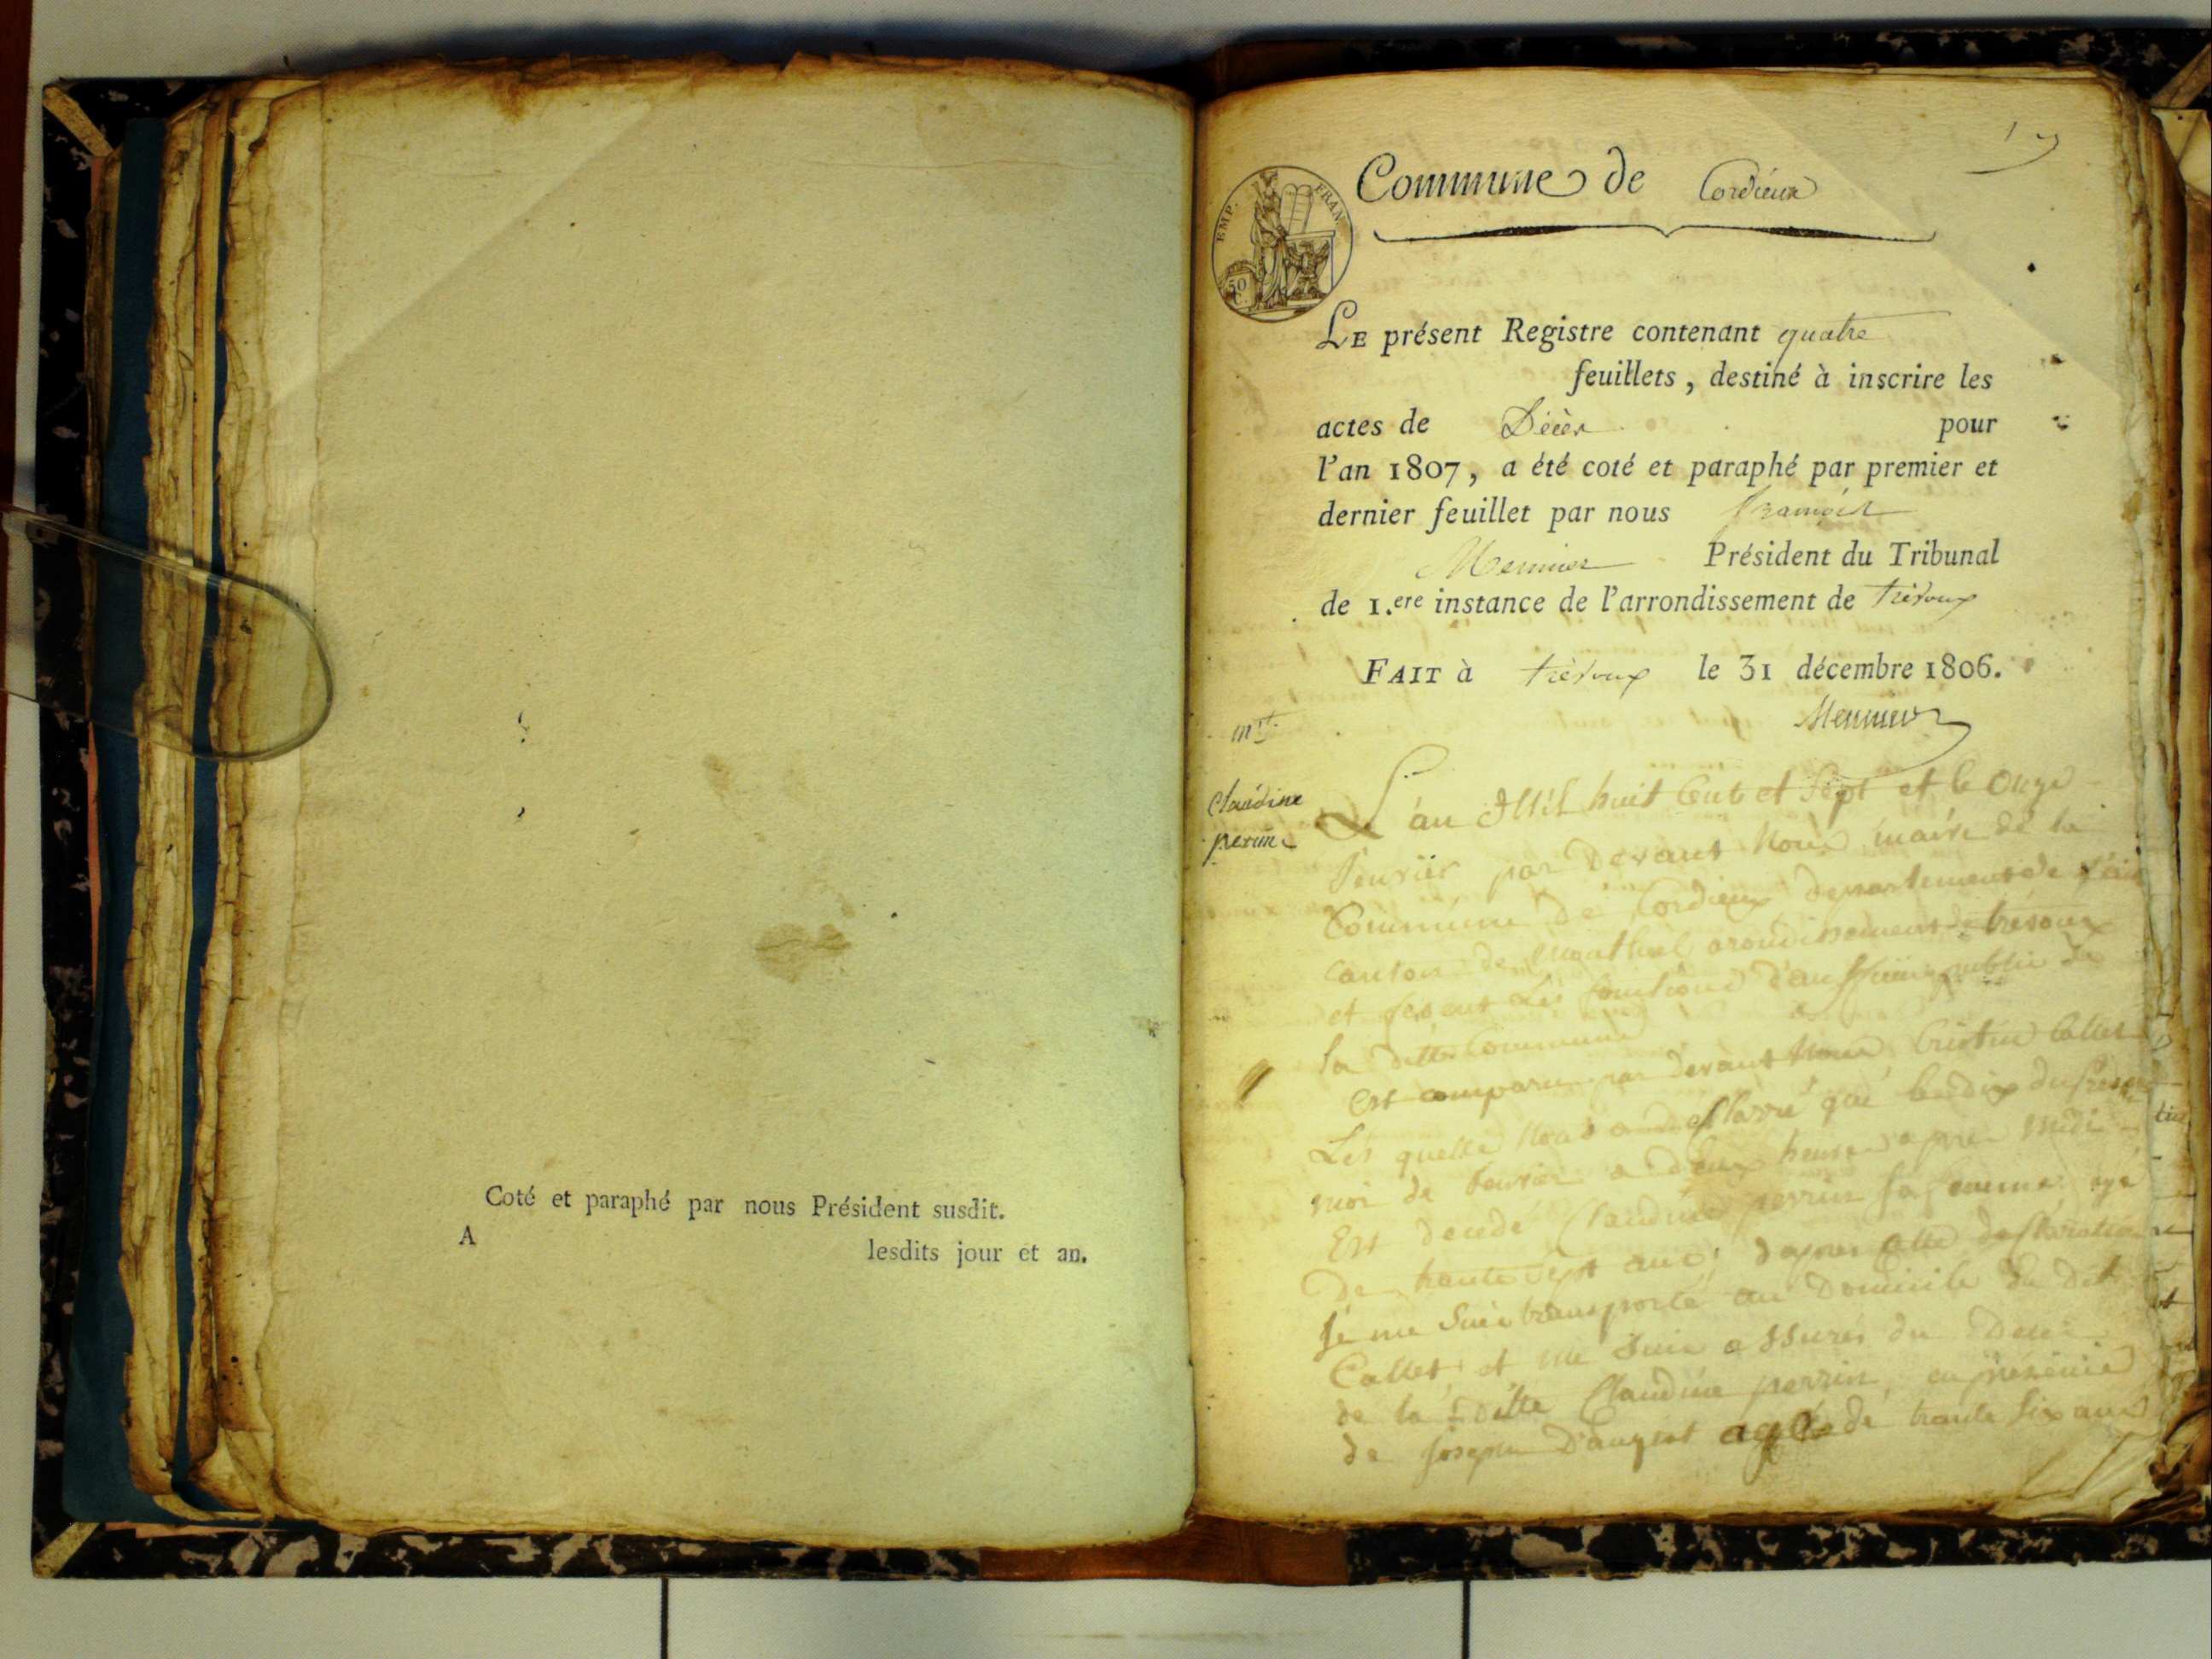 Coté et paraphé par nous Président susdit.
A
lesdits jour et an.
Commune de Cordieux
EMP. FRAN.
50 C.
LE présent Registre contenant quatre
feuillets, destiné à inscrire les
actes de Décès pour
l'an 1807, a été coté et paraphé par premier et
dernier feuillet par nous françois
Mermier Président du Tribunal
de 1.ere instance de l'arrondissement de trévoux
FAIT à trévoux le 31 décembre 1806.
Mermier
Claudine
perrin
L'an Mil huit Cent et Sept et le Onze
fevrier par Devant Nous maire de la
Commune de Cordieux departement de l'ain
canton de arondissement de trévoux
et fesant Les fonctions publie de
la ditte Commune
Est comparu par devant Nous Callet
Les quelle Nous a que le dix du
moi de fevrier a deux heure apre midi
Est decedé Claudine perrin sa femme agé
De trante Sept ans, dapres cette declaration
Je me Suis transporté au Domicile du dit
Callet et me Suis assurés du Deces
de la ditte Claudine perrin, en presence
de joseph agé de trante Six ans